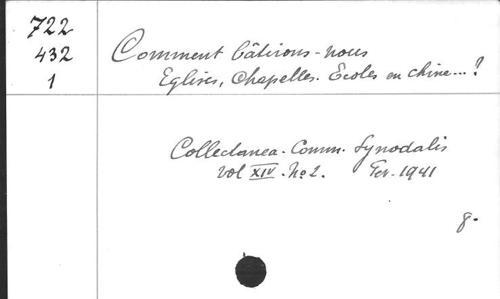 722
432
1
Comment bâtirons-nous
Eglises, Chapelles. Ecoles en chine...?
Collectanea. Comm. Synodalis
Vol XIV. No 2. Fev. 1941
8.